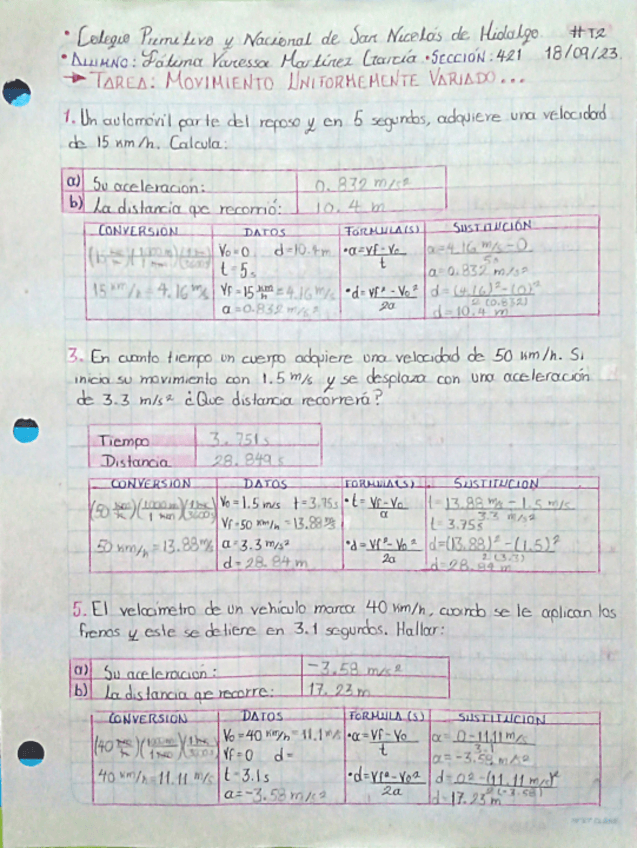 • Colegio Primitivo y Nacional de San Nicolás de Hidalgo. #T2
• ALUMNO: Fátima Vanessa Martínez García • SECCIÓN: 421 18/09/23.
→ TAREA: MOVIMIENTO UNIFORMEMENTE VARIADO...
1. Un automóvil parte del reposo y en 5 segundos, adquiere una velocidad
de 15 km/h. Calcula:
a) Su aceleración: 0.832 m/s²
b) La distancia que recorrió: 10.4 m
CONVERSION DATOS FORMULA(S) SUSTITUCIÓN
Vo=0 d=10.4m • a=Vf-Vo/t a=4.16 m/s-0/5s
t=5s a=0.832 m/s²
15 km/h = 4.16 m/s Vf=15 km/h=4.16 m/s • d=Vf²-Vo²/2a d=(4.16)²-(0)²/2(0.832)
a=0.832 m/s² d=10.4 m
3. En cuanto tiempo un cuerpo adquiere una velocidad de 50 km/h. Si
inicia su movimiento con 1.5 m/s y se desplaza con una aceleración
de 3.3 m/s² ¿Que distancia recorrerá?
Tiempo 3.751s
Distancia 28.849s
CONVERSION DATOS FORMULA(S) SUSTITUCION
(50 km/h)(1000m/1 km)(1 h/3600s) Vo=1.5 m/s t=3.75s • t=Vf-Vo/a t=13.88 m/s - 1.5 m/s/3.3 m/s²
Vf=50 km/h=13.88 m/s t=3.75s
50 km/h=13.88 m/s a=3.3 m/s² • d=Vf²-Vo²/2a d=(13.88)²-(1.5)²/2(3.3)
d=28.84 m d=28.84 m
5. El velocimetro de un vehiculo marca 40 km/h, cuando se le aplican los
frenos y este se detiene en 3.1 segundos. Hallar:
a) Su aceleracion: -3.58 m/s²
b) La distancia que recorre: 17.23m
CONVERSION DATOS FORMULA (S) SUSTITUCION
(40 km/h)(1000m/1 km)(1 h/3600s) Vo=40 km/h=11.1 m/s • a=Vf-Vo/t a=0-11.11 m/s/3.1
Vf=0 d= a=-3.58 m/s²
40 km/h=11.11 m/s t=3.1s • d=Vf²-Vo²/2a d=0²-(11.11 m/s)²/2(-3.58)
a=-3.58 m/s² d=17.23m